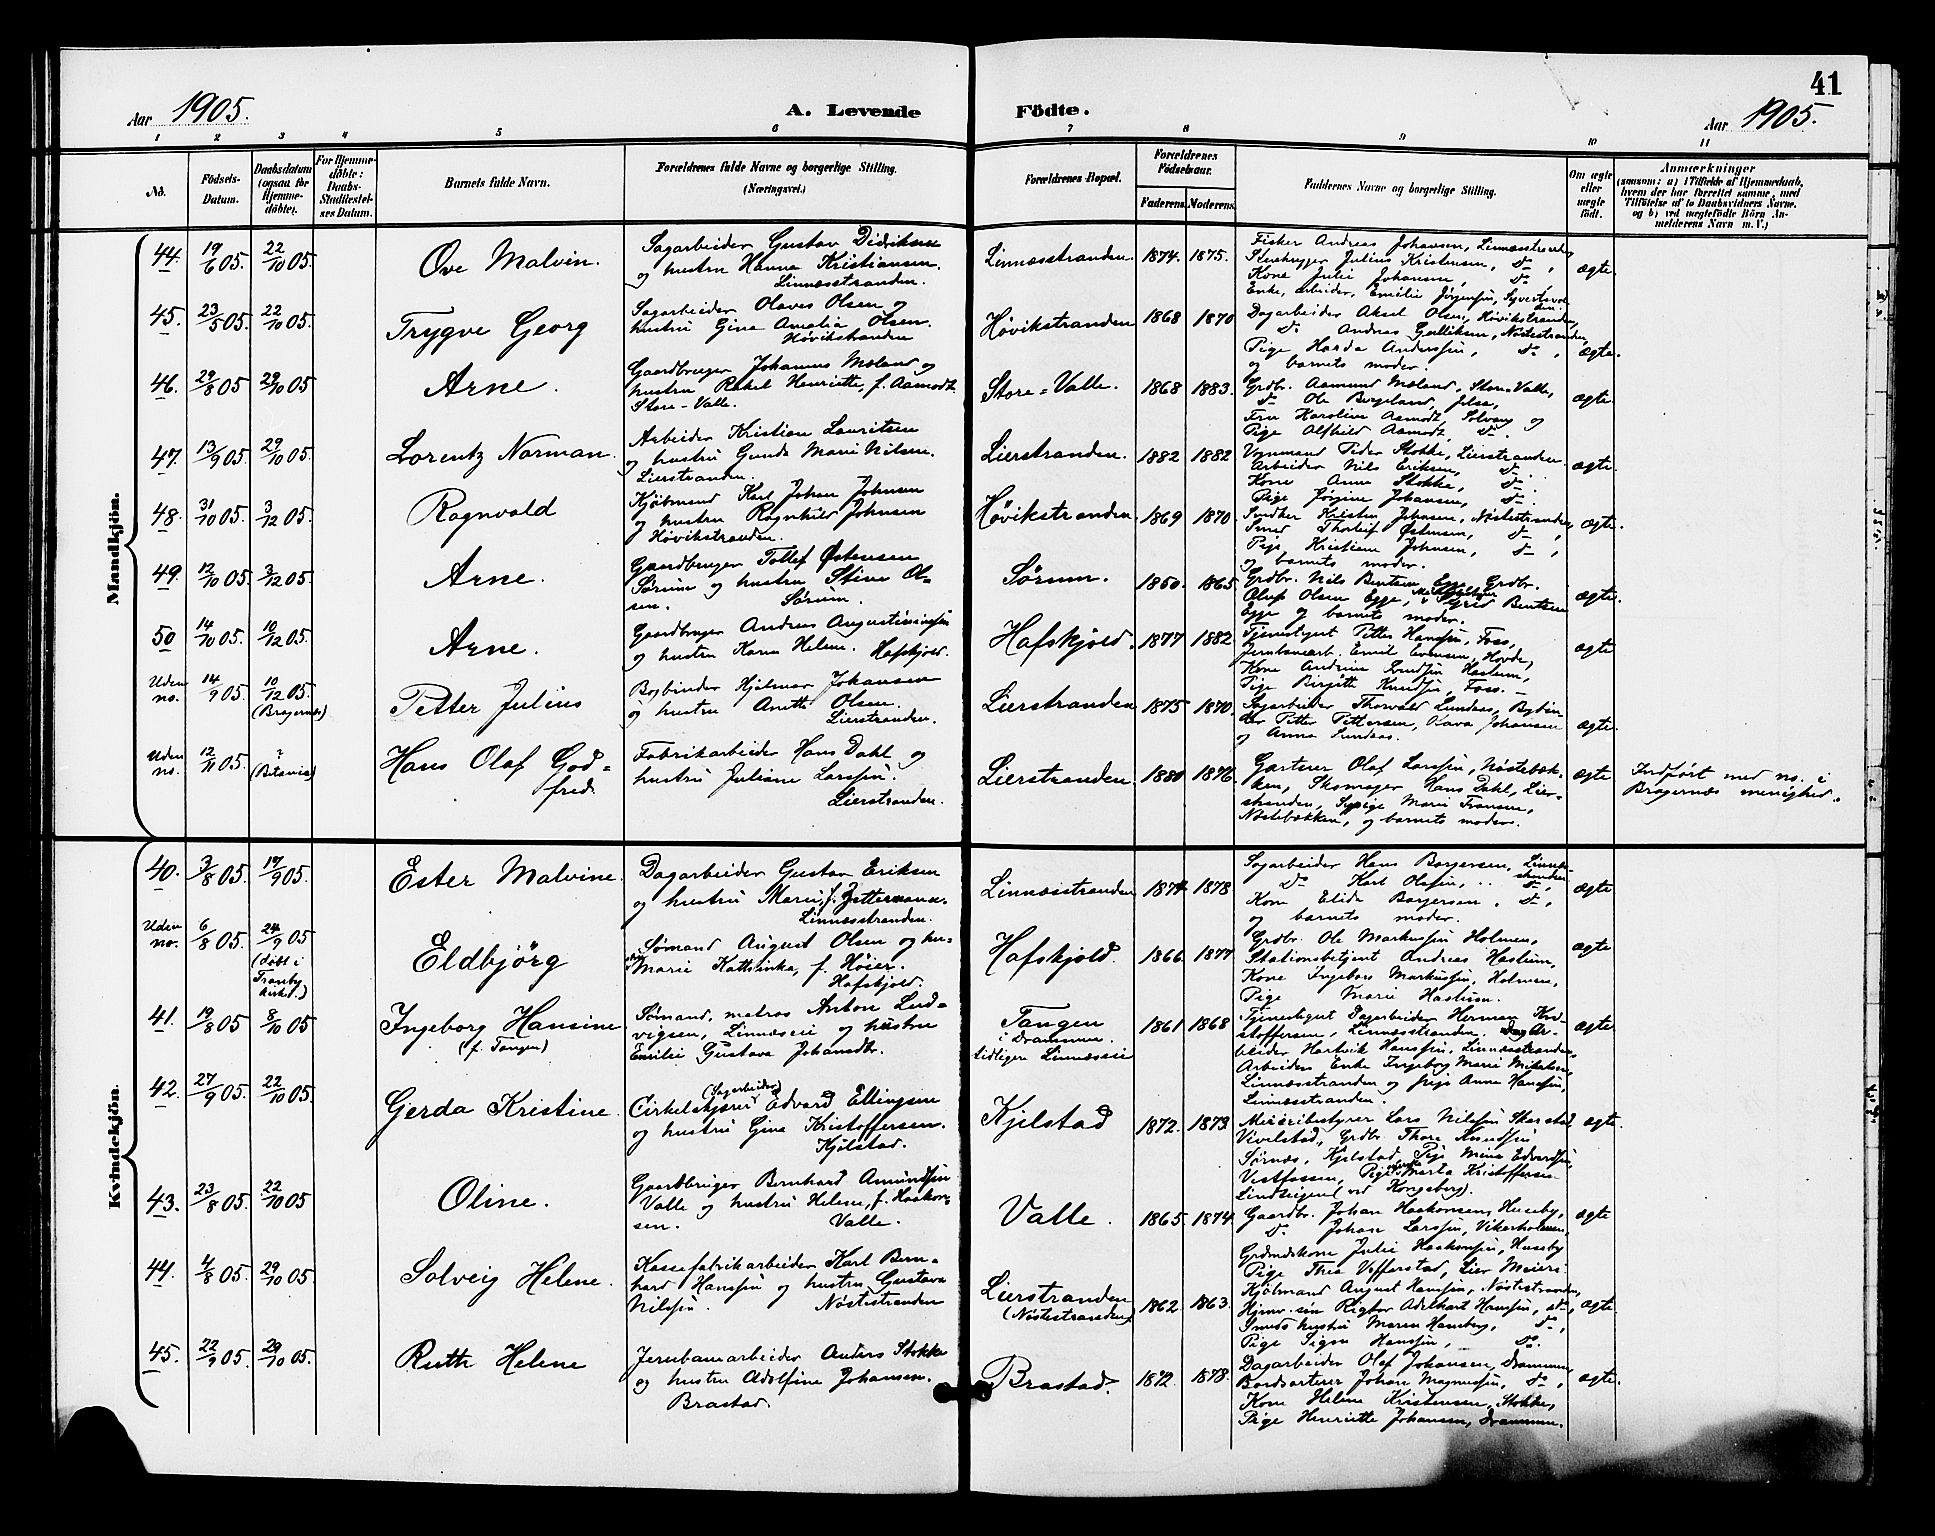 41
Aar 1905.
A. Levende Födte.
Aar 1905.
1 2 3 4 5 6 7 8 9 10 11
No.
Födsels-Datum.
Daabsdatum (ogsaa for Hjemme-döbte).
For Hjemme-döbte: Daabs-Stadfæstel-ses Datum.
Barnets fulde Navn.
Forældrenes fulde Navne og borgerlige Stilling. (Næringsvei.)
Forældrenes Bopæl.
Forældrenes Födselsaar.
Faderens. Moderens.
Faddernes Navne og borgerlige Stilling.
Om ægte eller uægte födt.
Anmærkninger
(saasom: a) i Tilfælde af Hjemmedaab,
hvem der har forrettet samme, med
Tilföielse af to Daabsvidners Navne,
og b) ved uægtefödte Börn An-
melderens Navn m. V.)
Mandkjön.
44. 19/6 05. 22/10 05. Ove Malvin.
Sagarbeider Gustav Didriksen
og hustru Hanna Kristiansen.
Linnæsstranden.
Linnæsstranden. 1874. 1875.
Fisker Andreas Johansen, Linnæsstranden,
Stenhugger Julius Kristensen, do,
Kone Julie Johansen, do
Enke, arbeider, Emilie Jørgensen,
ægte.
45. 23/5 05. 22/10 05. Trygve Georg
Sagarbeider Olaves Olsen og
hustru Gina Amalia Olsen.
Høvikstranden
Høvikstranden 1868 1870
Dagarbeider Aksel Olsen, Høvikstranden,
do. Andreas Gulliksen, Nøstestranden,
Pige Harda Anderssen, do,
og barnets moder.
ægte.
46. 29/8 05 29/10 05. Arne.
Gaardbruger Johannes Mæland og
hustru Rakel Henriette, f. Aamodt.
Store-Valle.
Store-Valle. 1868 1883.
Grdbr. Aamund Mæland, Store-Valle,
do Ole Bergeland, Jelsa,
Fru Karoline Aamodt, Solvang og
Pige Alfhild Aamodt, do.
ægte.
47. 13/9 05. 29/10 05. Lorentz Norman.
Arbeider Kristian Lauritsen
og hustru Gunda Marie Nilsen.
Lierstranden.
Lierstranden. 1882 1882
Vognmand Peder Stokke, Lierstranden.
Arbeider Nils Eriksen, do.
Kone Anna Stokke, do.
Pige Jørgine Johansen, do.
ægte.
48. 31/10 05. 3/12 05. Ragnvald
Kjøbmand Karl Johan Johnsen
og hustru Ragnhild Johnsen
Høvikstranden.
Høvikstranden. 1869 1870.
Snedker Kristen Johnsen, Nøstestranden,
Smed Thorleif Østensen, do,
Pige Kristiane Johnsen, do,
og barnets moder.
ægte.
49. 12/10 05. 3/12 05. Arne.
Gaardbruger Tollef Østensen
Sørum og hustru Stine Ol-
sen. Sørum.
Sørum. 1860. 1865.
Grdbr. Nils Bentsen Egge, Grdbr.
Oluf Olsen Egge, Sigrid Bentsen
Egge og barnets moder.
ægte.
50 14/10 05. 10/12 05. Arne.
Gaardbruger Andreas Augustinussen
og hustru Karen Helene. Hafskjold.
Hafskjold. 1877 1882.
Tjenestegut Petter Hanssen, Foss,
Jernbanearb. Emil Evensen, Hovde,
Kone Andrine Knudsen Haslum,
Pige Birgitte Knudsen, Foss.
ægte
Uden no. 14/9 05. 10/12 05. (Bragernæs) Petter Julius
Bogbinder Hjalmar Johansen
og hustru Anette Olsen.
Lierstranden.
Lierstranden 1875 1870.
Sagarbeider Thorvald Lundaas, Bogbin-
der Petter Pettersen, Kava Johansen
og Anna Lundaas.
ægte.
Uden no. 12/11 05. ? (Betania) Hans Olaf God-
fred.
Fabrikarbeider Hans Dahl og
hustru Juliane Larssen.
Lierstranden.
Lierstranden. 1880 1876.
Gartner Olaf Larssen, Nøstebæk-
ken, Skomager Hans Dahl, Lier-
stranden, Sypige Marie Fransen,
Nøstebækken, og barnets moder.
ægte
Indført med no. i
Bragernæs menighed.
Kvindekjön.
40. 3/8 05. 17/9 05. Ester Malvine.
Dagarbeider Gustav Eriksen
og hustru Marie, f. Zettermann.
Linnæsstranden.
Linnæsstranden 1874. 1878
Sagarbeider Hans Borgersen, Linnæs-
stranden
do Karl Olafsen, do,
Kone Elida Borgersen, do,
og barnets moder.
ægte
Uden no. 6/8 05. 24/9 05 (døbt i Tranby kirke.) Eldbjörg
Sømand August Olsen og hu-
stru Marie Kathinka, f. Høier.
Hafskjold.
Hafskjold. 1866. 1877
Grdbr. Ole Markussen Holmen,
Stationsbetjent Andreas Haslum,
Kone Ingeborg Markussen, Holmen,
Pige Marie Haslum.
ægte
41. 19/8 05 8/10 05 Ingeborg Hansine
(f. Tangen)
Sømand, matros Anton Lud-
vigsen, Linnæseie og hustru
Emilie Gustava Johansdtr.
Tangen
i Drammen.
tidligere Linnæseie
1861 1868
Tjenestegut Dagarbeider Herman Kri-
stoffersen, Linnæsstranden. Ar-
beider Hartvik Hanssen, Linnæsstranden,
Arbeiders Enke Ingeborg Marie Mikelsen,
Linnæsstranden og pige Anna Hanssen,
Linnæsstranden.
ægte
42. 27/9 05 22/10 05. Gerda Kristine.
(Sagarbeider)
Cirkelskjærer Edvard Ellingsen
og hustru Gina Kristoffersen.
Kjelstad.
Kjelstad 1872. 1873
Meieribestyrer Lars Nilssen Skarstad
Vivelstad, Grdbr. Thore Knudsen
Sørnæs, Kjelstad, Pige Mina Edvardsen,
Vestfossen, Pige Marta Kristoffersen
ved Kongsberg).
ægte.
43. 23/8 05 22/10 05 Oline.
Gaardbruger Bernhard Amundsen
Valle og hustru Helene, f. Haakon-
sen. Valle.
Valle. 1865. 1874.
Gaardbr. Johan Haakonsen, Huseby,
do. Johan Larssen, Vikerholmen,
Grdmdskone Julie Haakonsen, Huseby
Pige Thea Vefferstad, Lier Meieri
ægte
44. 4/8 05. 29/10 05. Solveig Helene.
Kassefabrikarbeider Karl Bern-
hard Hanssen og hustru Gustava
Nilssen. Nøstestranden
Lierstranden
(Nøstestranden)
1862 1863.
Kjøbmand August Hanssen, Nøstestranden,
Hjmv. søn Rigtor Adelhart Hanssen, do,
Smeds hustru Maren Hansberg, do,
Pige Signe Hanssen, do.
ægte.
45. 22/9 05. 29/10 05. Ruth Helene
Jernbanearbeider Anders Stokke
og hustru Adolfine Johansen.
Brastad.
Brastad. 1872. 1878.
Dagarbeider Olaf Johansen, Drammen,
Bordsorterer Johan Magnussen, do,
Kone Helene Kristensen, Stokke,
Pige Henriette Johansen, Drammen.
ægte.